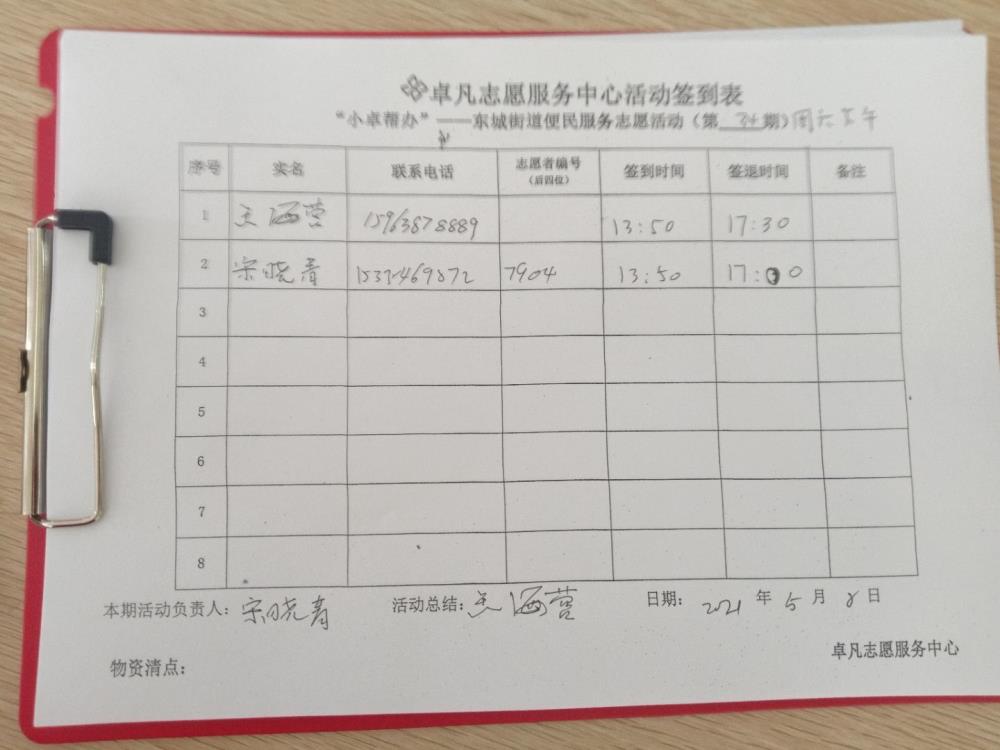 卓凡志愿服务中心活动签到表
“小卓帮办”——东城街道便民服务志愿活动（第 34 期）周六下午
序号 实名 联系电话 志愿者编号（后四位） 签到时间 签退时间 备注
1 王海营 15963878889 13:50 17:30
2 宋晓青 7904 13:50 17:00
3
4
5
6
7
8
本期活动负责人：宋晓青 活动总结：王海营 日期：2021 年 5 月 8 日
卓凡志愿服务中心
物资清点：